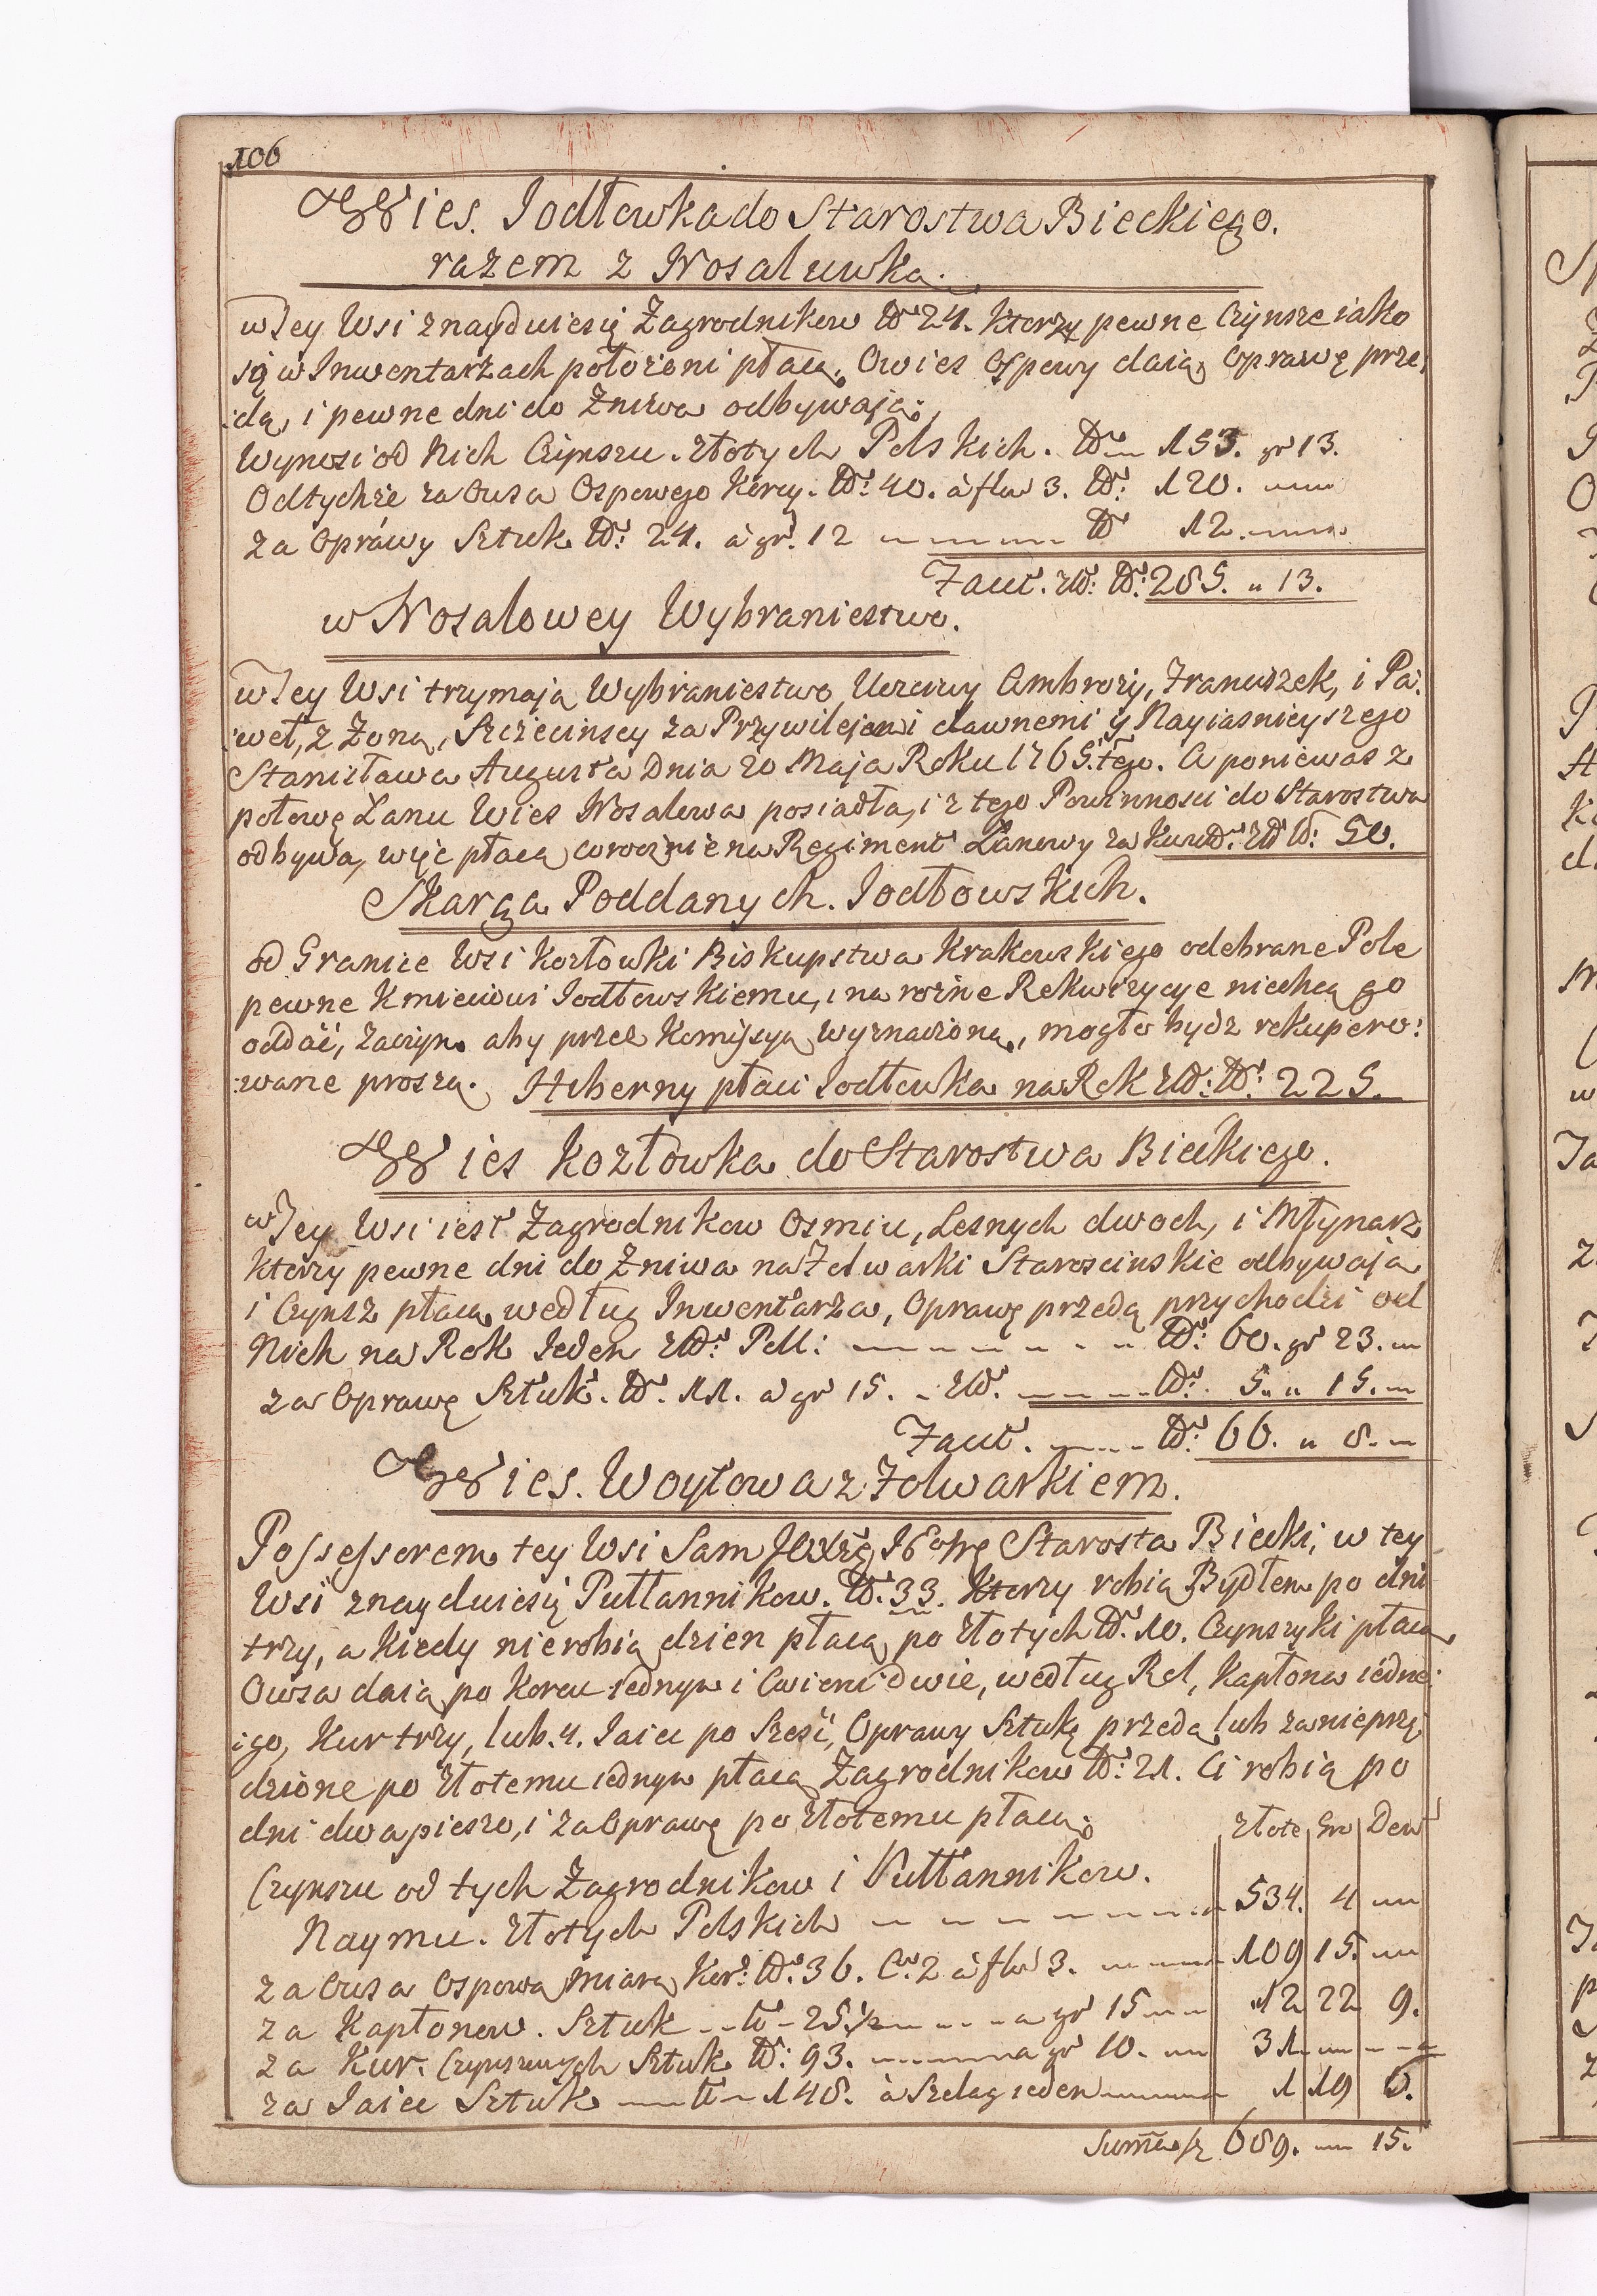 106
Wies. Jodłowka do Starostwa Bieckiego.
razem z Nosaluwka.
w Jey Wsi znayduiesię Zagrodnikow N 24. ktorzy pewne Czynsze iako
są w Inwentarzach położeni płacą, Owies Ospowy daią, Oprawę prze,
:dą, i pewne dni do Żniwa odbywaią.
Wynosi od Nich Czynszu. Złotych Polskich. 153. gr 13.
Odtychże za Owsa Ospowego Korcy. 40. à flor 3. 120.
za Oprawy Sztuk 24. à gr. 12 12.
Facit. 285. " 13.
w Nosalowey Wybraniestwo.
w Jey Wsi trzymaią Wybraniestwo Uczciwy Ambroży, Franciszek, i Pa:
:weł, z Żoną, Szczecinscy za Przywilejami dawnemi y Nayiasnieyszego
Stanisława Augusta Dnia 20 Maja Roku 1765.tego. A poniewasz
połowę Łanu Wies Nosalowa posiadła, i z tego Powinnosci do Starostwa
odbywa, więc płacą corocznie na Regiment Łanowy za 50.
Skarga Poddanych. Jodłowskich.
od Granice Wsi Kozłowki Biskupstwa Krakowskiego odebrane Pole
pewne Kmieciowi Jodłowskiemu, i na rożne Rekwizycye niechcą go
oddać, zaczym aby przez Komissyą wyznaczoną, mogło bydz rekupero:
:wane proszą. Hiberny płaci Jodłowka na Rok 225.
Wies Kozłowka do Starostwa Bieckiego.
w Jey Wsi iest Zagrodnikow Osmiu, Lesnych dwoch, i Młynarz
ktorzy pewne dni do Żniwa na Folwarki Staroscinskie odbywaią
i Czynsz płacą według Inwentarza, Oprawę przedą przychodzi od
Nich na Rok Jeden Poll: 60. gr 23.
za Oprawę Sztuk. 11. a gr 15. 5. " 15.
Facit. 66. " 8.
Wies. Woytowa z Folwarkiem.
Possessorem tey Wsi Sam Starosta Biecki, w tey
Wsi znayduiesię Pułłannikow. 33. ktorzy robią Bydłem po dni
trzy, a kiedy nierobią dzien płacą po Złotych 10. Czynszyki płacą
Owsa daią po Korcu iednym i Cwierci dwie, według Rel, Kapłona iedne:
:go, Kur trzy, lub. 4. Jaiec po Szesć, Oprawy Sztukę przedą lub za nieprzę
dzione po Złotemu iednym płacą Zagrodnikow 21. Ci robią po
dni dwa pieszo, i za Oprawę po Złotemu płacą.
Złote Gro Den
Czynszu od tych Zagrodnikow i Pułłannikow.
Naymu. Złotych Polskich 534. 4
za Owsa Ospową miarą Kor: 36. Cw. 2 à flor 3. 109 15.
za Kapłonow. Sztuk 25½ a gr 15 12 22 9.
za Kur. Czynszowych Sztuk 93. a gr 10. 31.
za Jaiec Sztuk 148. à Szelag ieden 1 19 6.
Suma fz 689. 15.